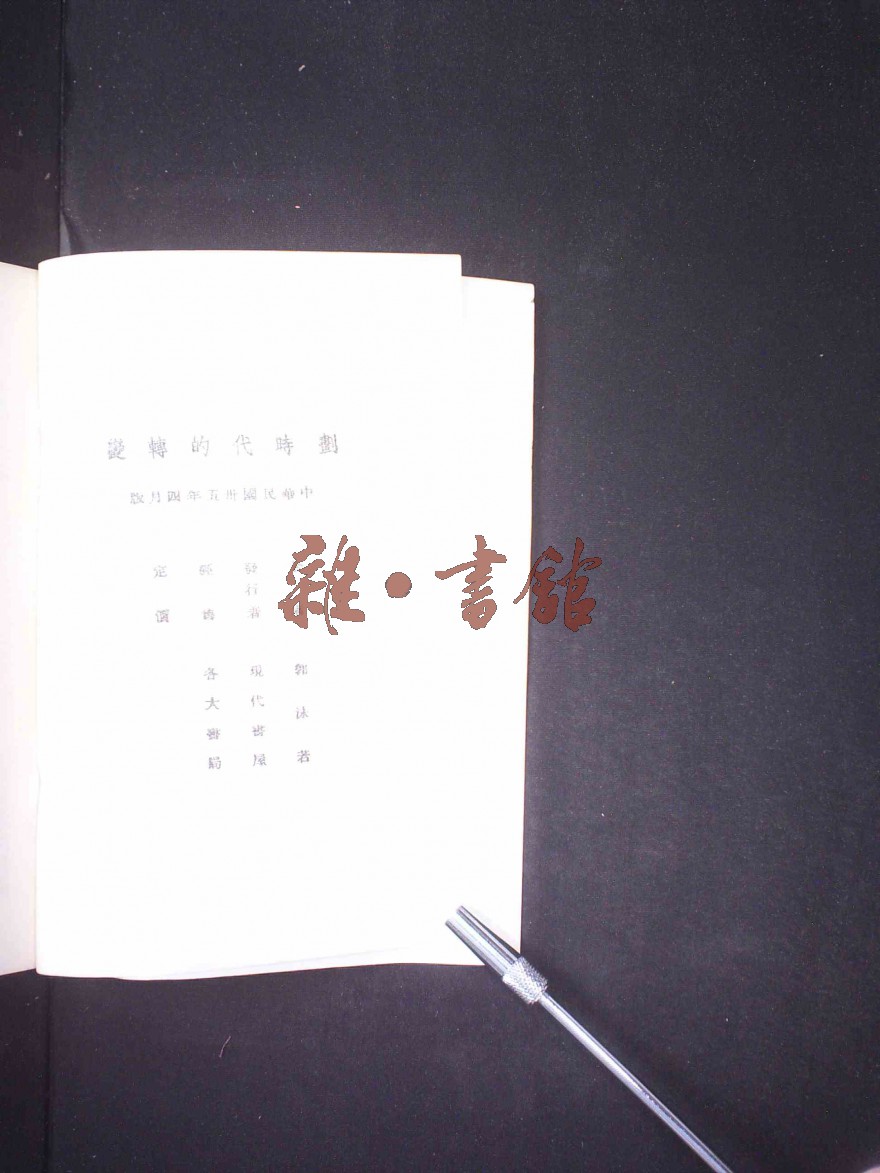 劃時代的轉變
中華民國卅五年四月版
郭沫若
發行者
現代書屋
經售
各大書局
定價
雜·書館